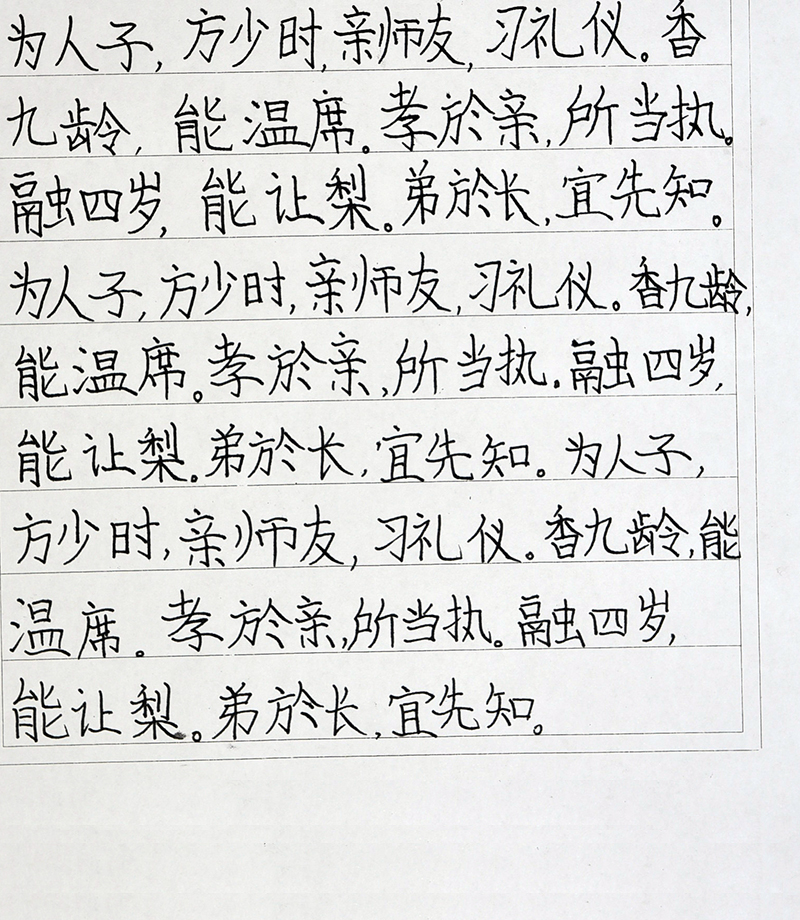 为人子,方少时,亲师友,习礼仪。香
九龄,能温席。孝於亲,所当执。
融四岁,能让梨。弟於长,宜先知。
为人子,方少时,亲师友,习礼仪。香九龄,
能温席。孝於亲,所当执.融四岁,
能让梨。弟於长,宜先知。为人子,
方少时,亲师友,习礼仪。香九龄,能
温席。孝於亲,所当执。融四岁,
能让梨。弟於长,宜先知。